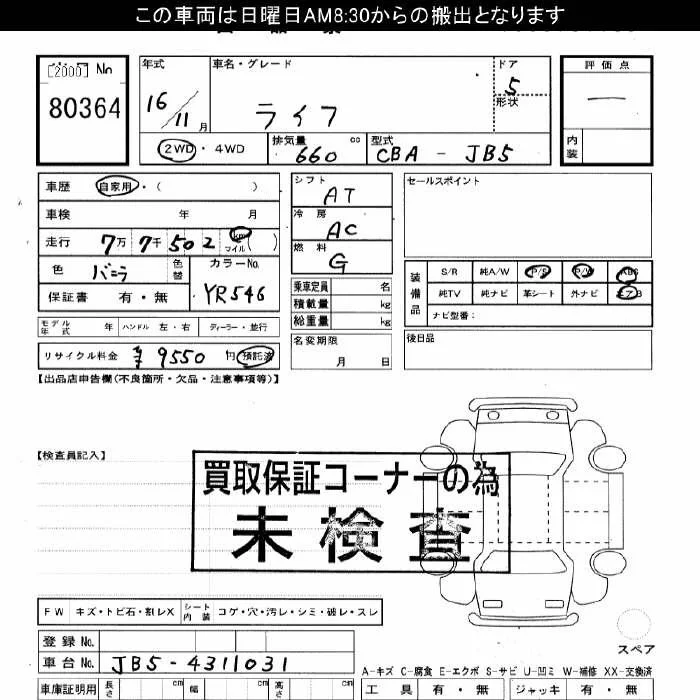 この車両は日曜日AM8:30からの搬出となります
[2000] No
80364
年式
16/11月
車名・グレード
ライフ
ドア
5
形状
評価点
一
内装
2WD・4WD
排気量 660 cc
型式 CBA - JB5
車歴 自家用・( )
車検 年 月
走行 7万 7千 502 km マイル ( )
色 バニラ 色替
カラーNo. YR546
保証書 有・無
モデル年式 年 ハンドル 左・右 ディーラー・並行
リサイクル料金 ¥9550 円 預託済
シフト AT
冷房 AC
燃料 G
乗車定員 名
積載量 kg
総重量 kg
名変期限
月 日
セールスポイント
装備品
S/R 純A/W P/S P/W ABS
純TV 純ナビ 革シート 外ナビ エアB
ナビ型番:
後日品
【出品店申告欄(不良箇所・欠品・注意事項等)】
【検査員記入】
買取保証コーナーの為
未検査
FW キズ・トビ石・割レX シート内装 コゲ・穴・汚レ・シミ・破レ・スレ
登録 No.
車台 No. JB5-4311031
車庫証明用 長さ cm 幅 cm 高さ cm
スペア
A-キズ C-腐食 E-エクボ S-サビ U-凹ミ W-補修 XX-交換済
工具 有・無 ジャッキ 有・無